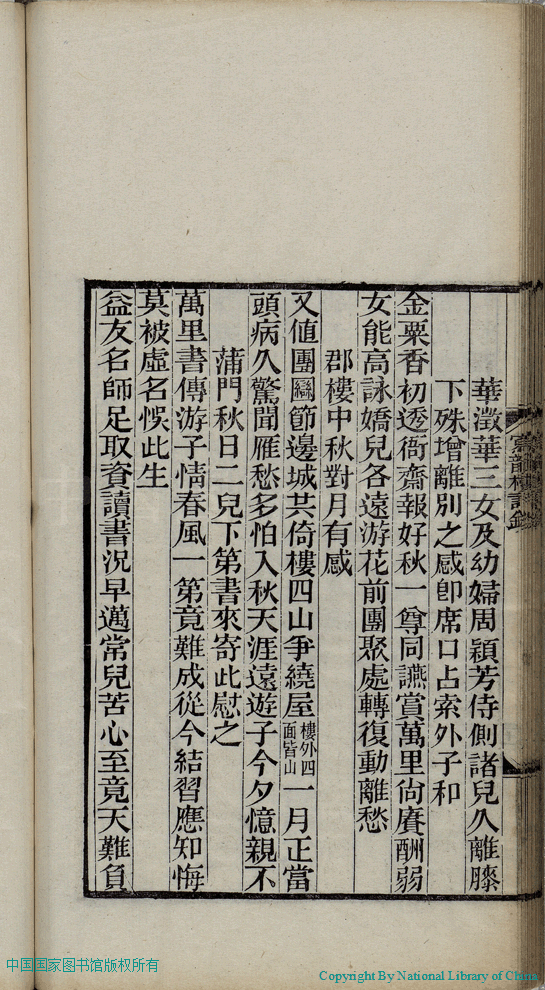 華澂華三女及幼婦周穎芳侍側諸兒久離膝
下殊增離別之感卽席口占索外子和
金粟香初透衙齋報好秋一尊同讌賞萬里尙賡酬弱
女能高詠嬌兒各遠游花前團聚處轉復動離愁
郡樓中秋對月有感
又値團圞節邊城共倚樓四山爭繞屋樓外四面皆山一月正當
頭病久驚聞雁愁多怕入秋天涯遠遊子今夕憶親不
蒲門秋日二兒下第書來寄此慰之
萬里書傳游子情春風一第竟難成從今結習應知悔
莫被虛名悞此生
益友名師足取資讀書況早邁常兒苦心至竟天難負
中国国家图书馆版权所有
Copyright By National Library of China